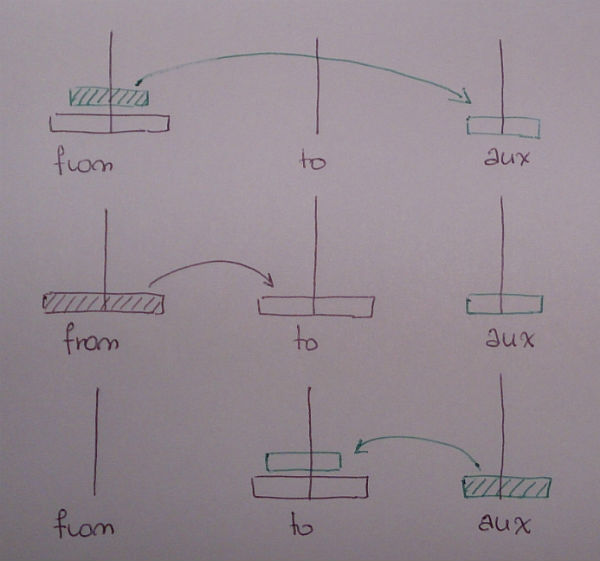 from to aux
from to aux
from to aux